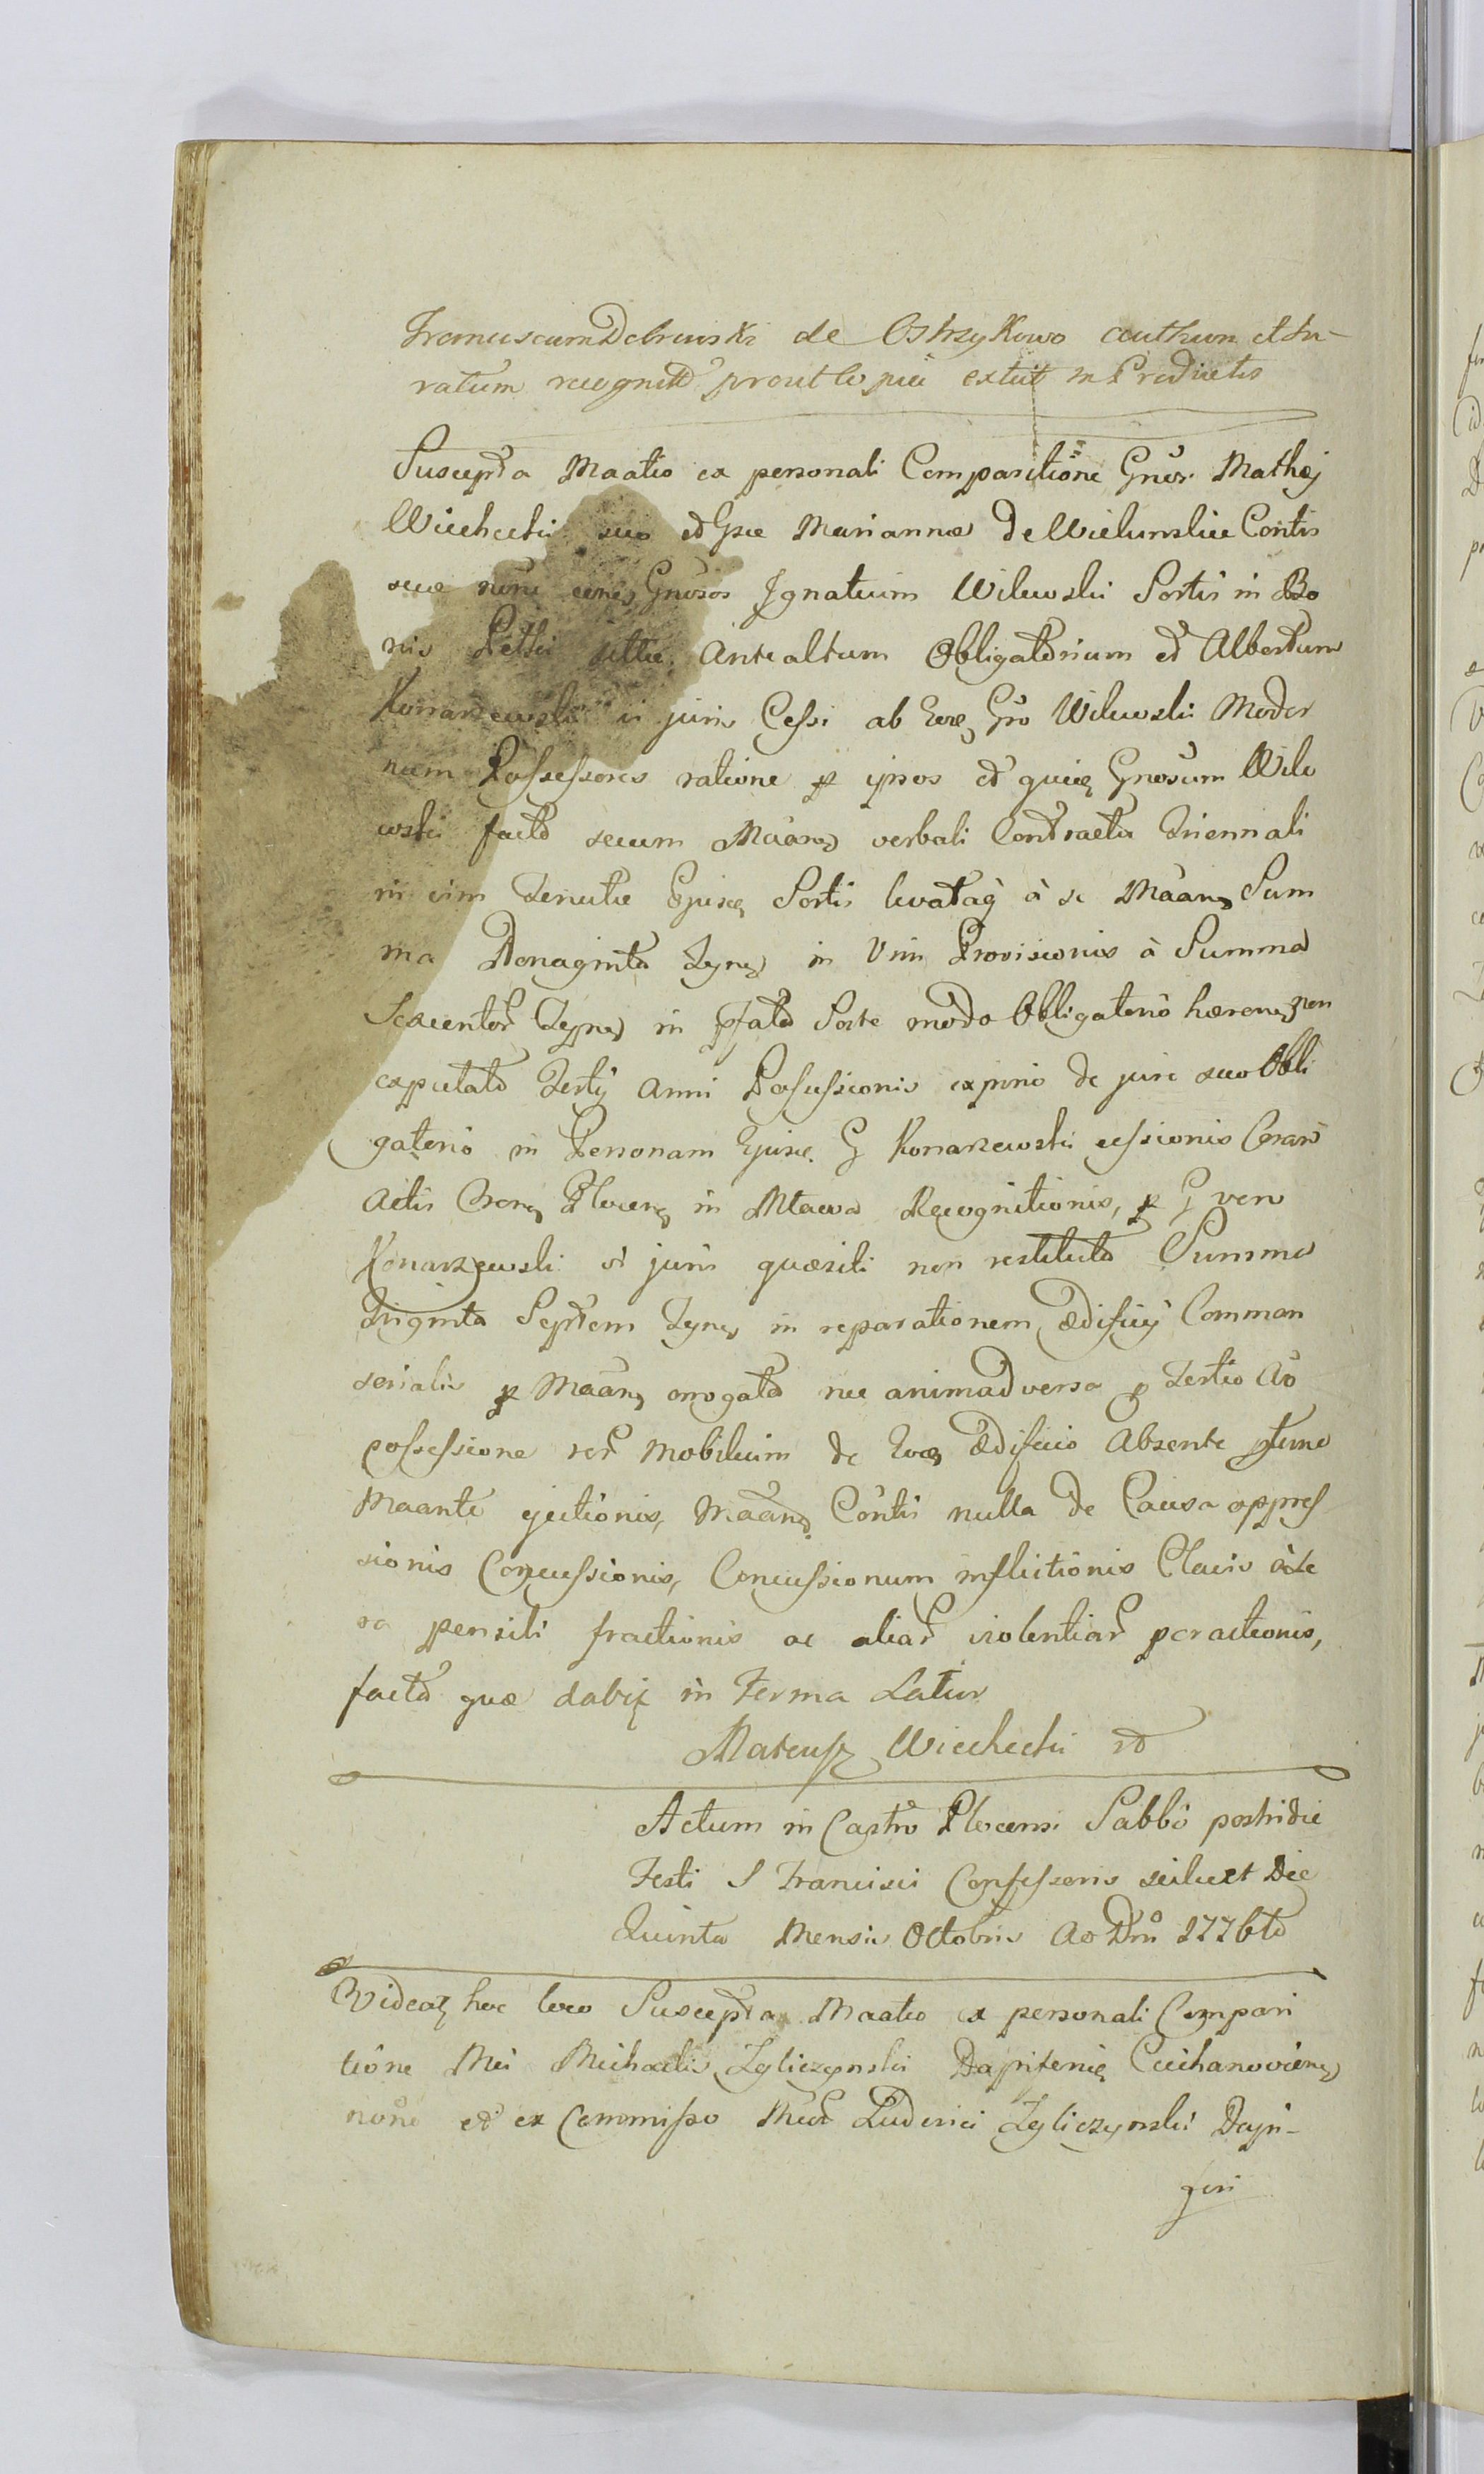 Franciscum Dobrinski de Ostrzykowo authum et Ju-
ratum recognitt prout copia extat in Productis
Suscepta Maatio ex personali Comparitione Gnosi Mathej
Wiechecki suo et Gsae Mariannae de Wielunskie Contis
suae nomi conts Gnosos Ignatium Wilewski Sortis in Bo
nis Antealtum Obligatorium et Albertum
Konarzewski vi juris Cessi ab Gso Wilewski Moder
num Possessores ratione p ipsos et Gnosum Wile
wski facto secum Maans verbali Contractu Triennali
in vim Tenutae Ejusq Sortis levataq à se Maans Sum
ma Nonaginta Tyns in Vim Provisionis à Summa
Sexcentor Tyns in pfata Sorte modo Obligatorio haerens non
exputato Tertij Anni Possessionis expirio de jure suo Obli
gatorio in Personam Ejusq G Konarzewski cessionis Coram
Actis Plocens in Mlawa Recognitionis, p G vero
Konarzewski vi juris quaesiti non restituta Summa
Triginta Septem Tyns in reparationem aedificij Comman
sorialis p Maans erogata nec animadversa p Tertio Ao
possessione rer Mobilium de aedificio Absente
Maante ejectionis, Maans Contis nulla de Causa oppres
sionis Concussionis, Concussionum inflictionis Clavis à Se
ra pensili fractionis ac aliar violentiar peractionis,
facta quae dabit in Terma Latior
Mateusz Wiechecki
Actum in Castro Plocensi Sabbo postridie
Festi S Francisci Confessoris scilicet Die
Quinta Mensis Octobris Ao Dni 1776to
Videat hoc loco Suscepta Maatio ex personali Compari
tione Mci Michaelis Zgliczynski Dapiferiq Ciechanoviens
noe et ex Commisso Mcor Ludovici Zgliczynski Dapi-
feri